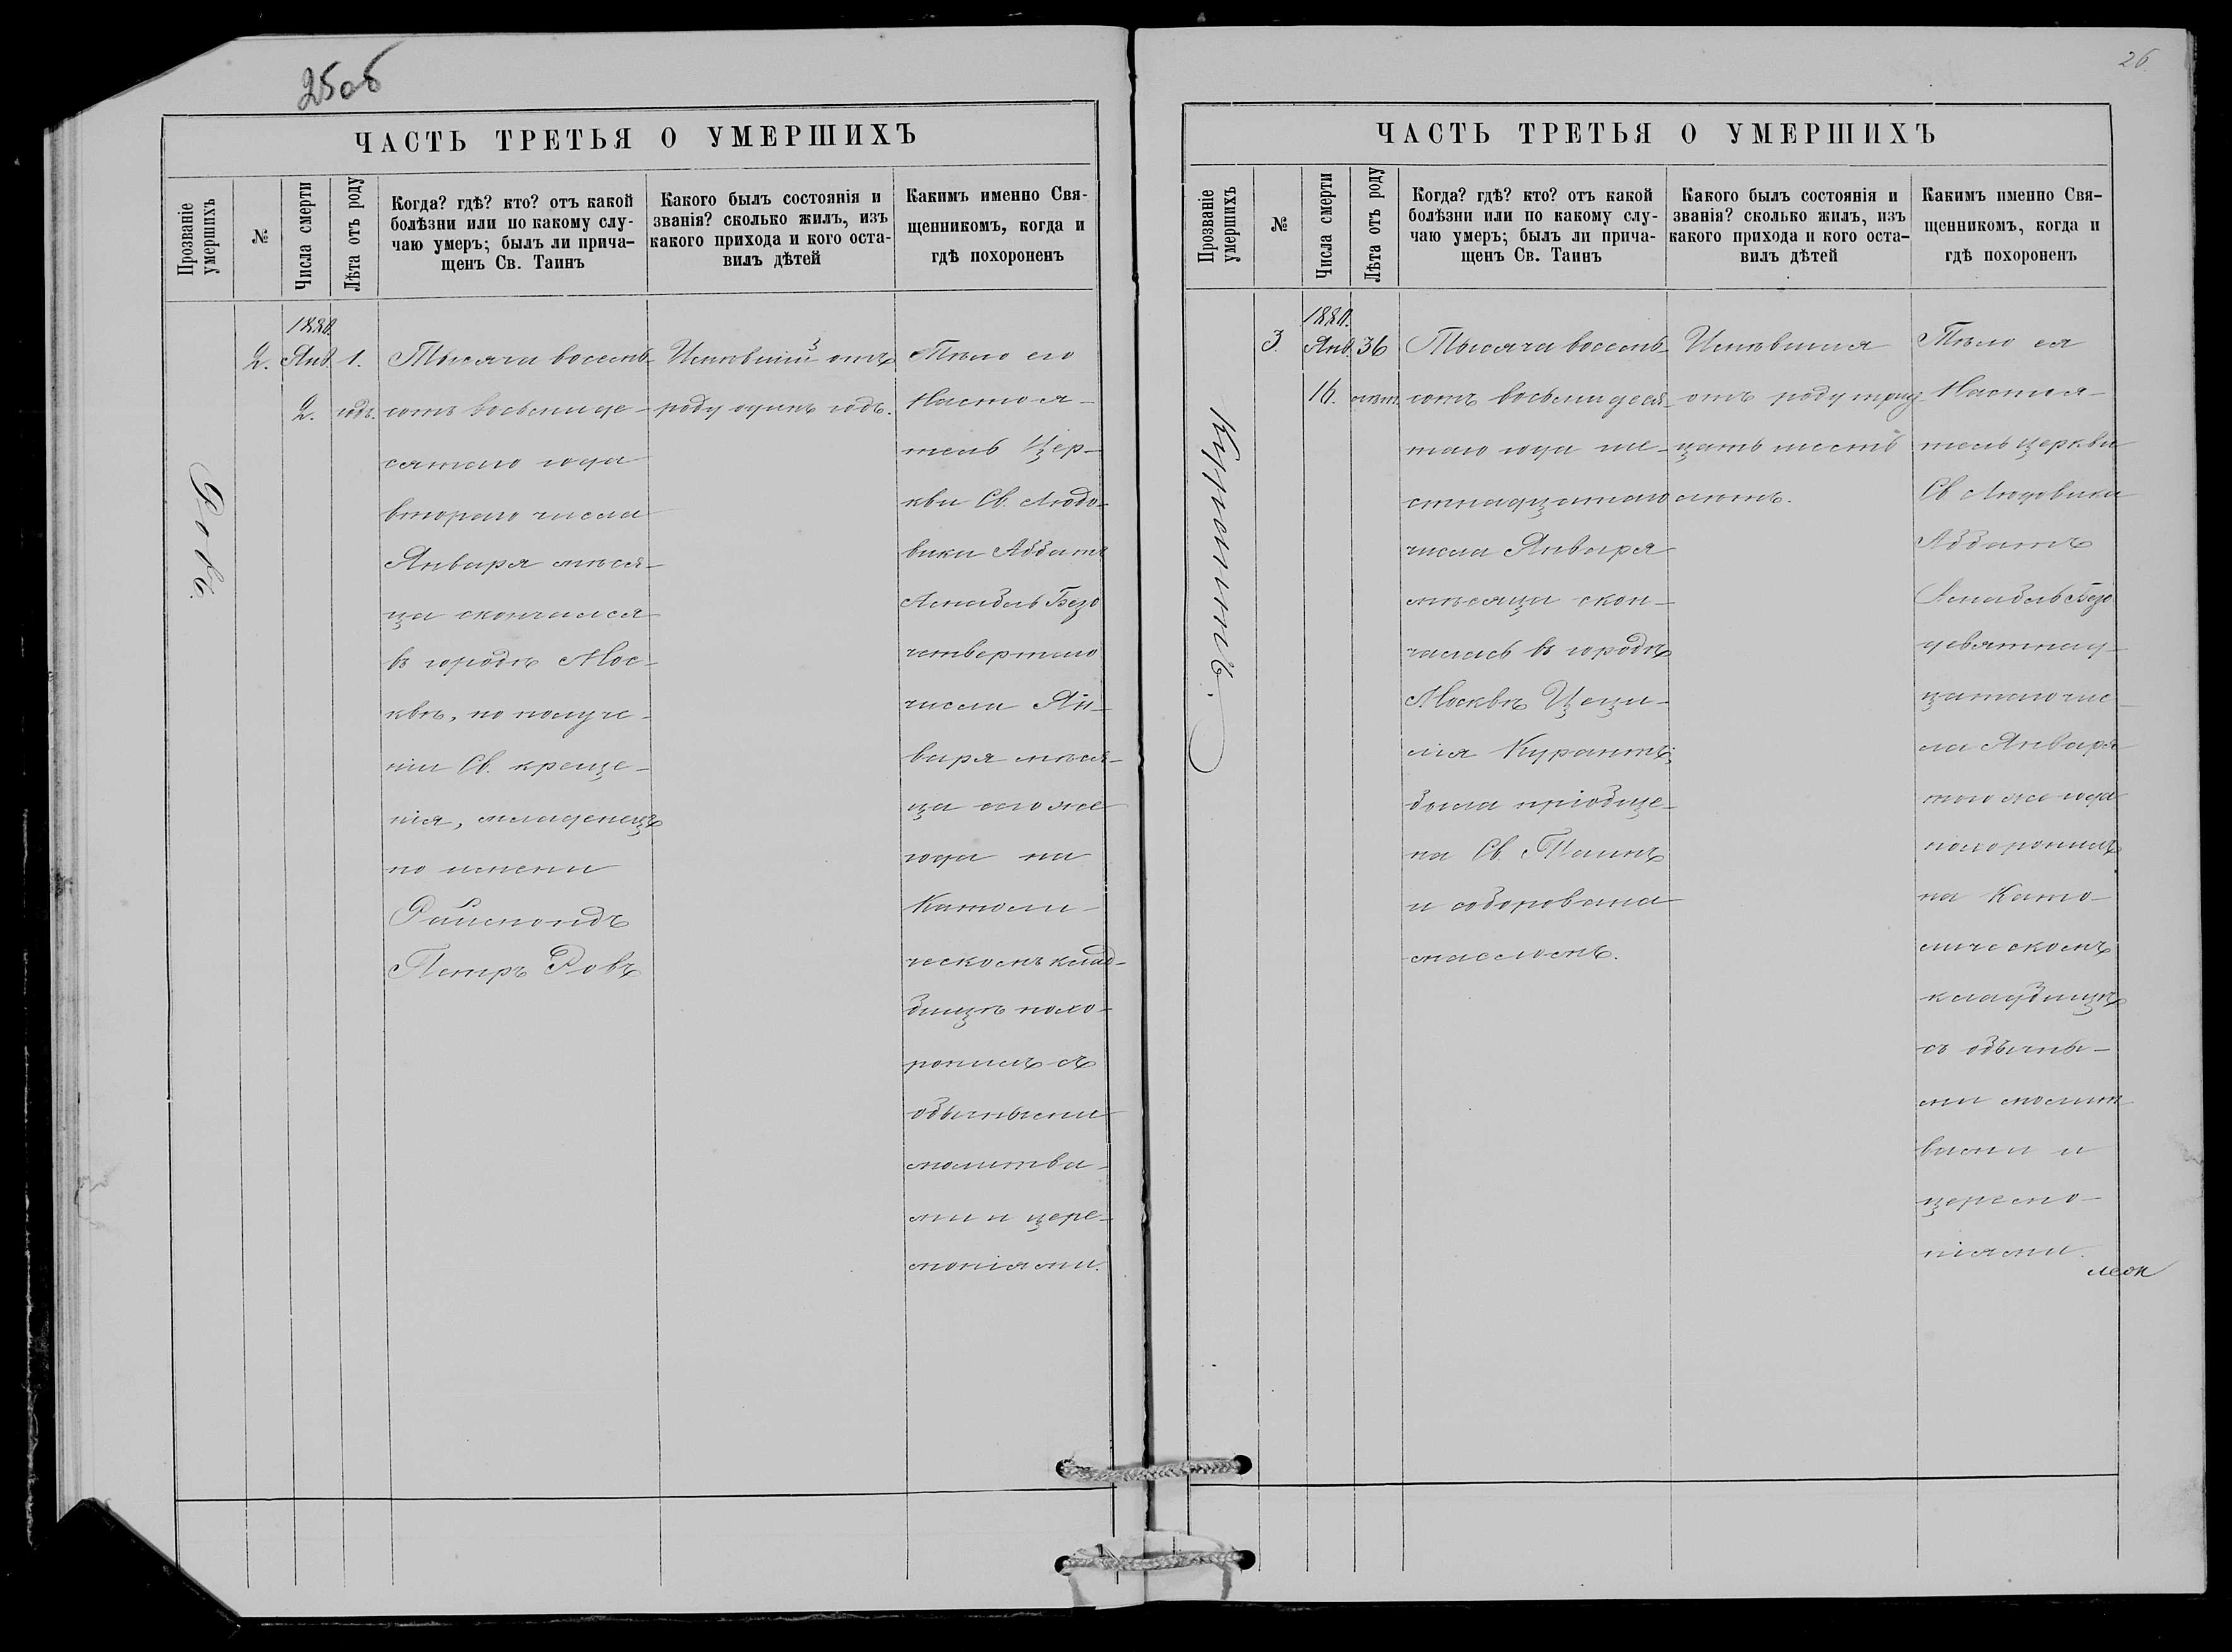 25об
ЧАСТЬ ТРЕТЬЯ О УМЕРШИХЪ
Прозваніе умершихъ
№
Числа смерти
Лѣта отъ роду
Когда? гдѣ? кто? отъ какой
болѣзни или по какому слу-
чаю умеръ; былъ ли прича-
щенъ Св. Таинъ
Какого былъ состоянія и
званія? сколько жилъ, изъ
какого прихода и кого оста-
вилъ дѣтей
Какимъ именно Свя-
щенникомъ, когда и
гдѣ похороненъ
Ровъ.
2.
1880.
Янв.
2.
1.
годъ.
Тысяча восемь-
сотъ восьмиде-
сятаго года
втораго числа
Января мѣся-
ца скончался
въ городѣ Мос-
квѣ, по получе-
ніи Св. креще-
нія, младенецъ
по имени
Раймондъ
Петръ Ровъ
Имѣвшій отъ
роду одинъ годъ.
Тѣло его
Настоя-
тель Цер-
кви Св. Людо-
вика Аббатъ
Амабль Безо
четвертаго
числа Ян-
варя мѣся-
ца того же
года на
Католи-
ческомъ клад-
бищѣ похо-
ронилъ съ
обычными
молитва-
ми и цере-
моніями.
26.
ЧАСТЬ ТРЕТЬЯ О УМЕРШИХЪ
Прозваніе умершихъ
№
Числа смерти
Лѣта отъ роду
Когда? гдѣ? кто? отъ какой
болѣзни или по какому слу-
чаю умеръ; былъ ли прича-
щенъ Св. Таинъ
Какого былъ состоянія и
званія? сколько жилъ, изъ
какого прихода и кого оста-
вилъ дѣтей
Какимъ именно Свя-
щенникомъ, когда и
гдѣ похороненъ
Курантъ.
3.
1880.
Янв.
16.
36
лѣт.
Тысяча восемь-
сотъ восьмидеся-
таго года ше-
стнадцатаго
числа Января
мѣсяца скон-
чалась въ городѣ
Москвѣ Цеци-
лія Курантъ,
была пріобще-
на Св. Таинъ
и соборована
масломъ.
Имѣвшая
отъ роду трид-
цать шесть
лѣтъ.
Тѣло ея
Настоя-
тель церкви
Св Людовика
Аббатъ
Амабль Безо
девятнад-
цатаго чис-
ла Января
того же года
похоронилъ
на Като-
лическомъ
кладбищѣ
съ обычны-
ми молит
вами и
церемо-
ніями.